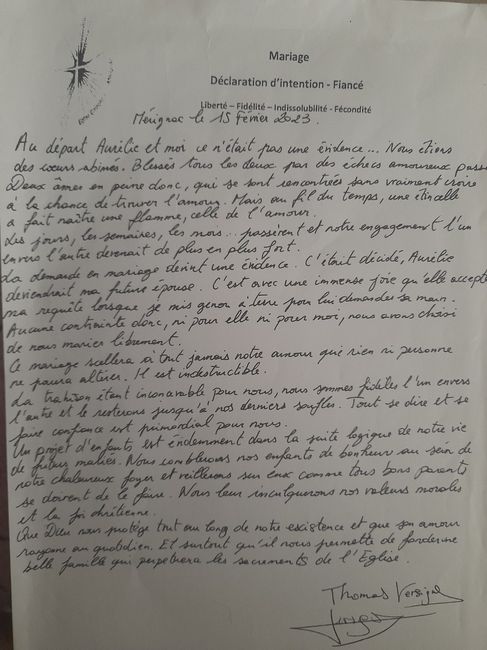 Mariage
Déclaration d'intention - Fiancé
Liberté – Fidélité – Indissolubilité - Fécondité
Mérignac le 15 Février 2023.
Au départ Aurélie et moi ce n'était pas une évidence... Nous étions
des cœurs abimés. Blessés tous les deux par des échecs amoureux passé
Deux âmes en peine donc, qui se sont rencontrées sans vraiment croire
à la chance de trouver l'amour. Mais au fil du temps, une étincelle
a fait naître une flamme, celle de l'amour.
Les jours, les semaines, les mois... passèrent et notre engagement l'un
envers l'autre devenait de plus en plus fort.
La demande en mariage devint une évidence. C'était décidé, Aurélie
deviendrait ma future épouse. C'est avec une immense joie qu'elle accepte
ma requête lorsque je mis genou à terre pour lui demander sa main.
Aucune contrainte donc, ni pour elle ni pour moi, nous avons choisi
de nous marier librement.
Ce mariage scellera à tout jamais notre amour que rien ni personne
ne pourra altérer. Il est indestructible.
La trahison étant inconcevable pour nous, nous sommes fidèles l'un envers
l'autre et le resterons jusqu'à nos derniers souffles. Tout se dire et se
faire confiance est primordial pour nous.
Un projet d'enfants est évidemment dans la suite logique de notre vie
de futurs mariés. Nous comblerons nos enfants de bonheur au sein de
notre chaleureux foyer et veillerons sur eux comme tous bons parents
se doivent de le faire. Nous leur inculquerons nos valeurs morales
et la foi chrétienne.
Que Dieu nous protège tout au long de notre existence et que son amour
rayonne au quotidien. Et surtout qu'il nous permette de fonder une
belle famille qui perpétuera les sacrements de l'Eglise.
Thomas